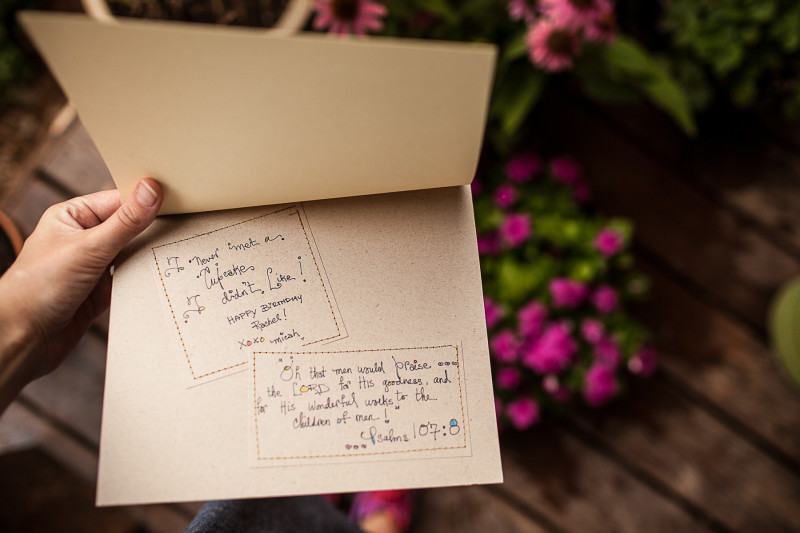 I never met a
Cupcake
I didn't Like!
HAPPY BIRTHDAY
Rachel!
XOXO micah
"Oh that men would praise
the LORD for His goodness, and
for His wonderful works to the
children of men!"
Psalms 107:8